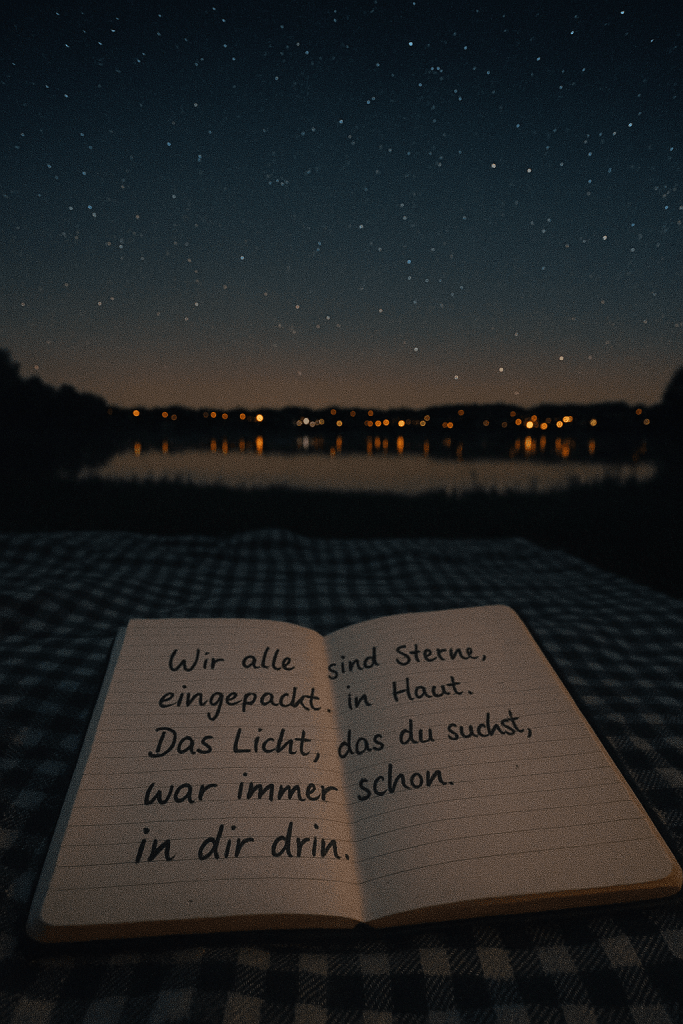 Wir alle sind Sterne,
eingepackt. in Haut.
Das Licht, das du suchst,
war immer schon.
in dir drin.